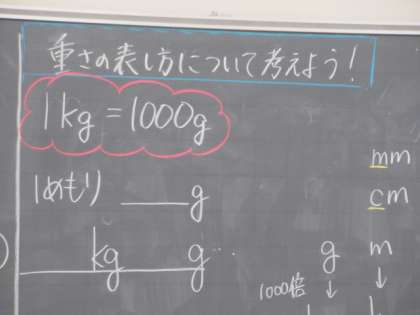 重さの表し方について考えよう!
1kg=1000g
1めもり ____g
kg g…
mm
cm
g m
1000倍 ↓ ↓